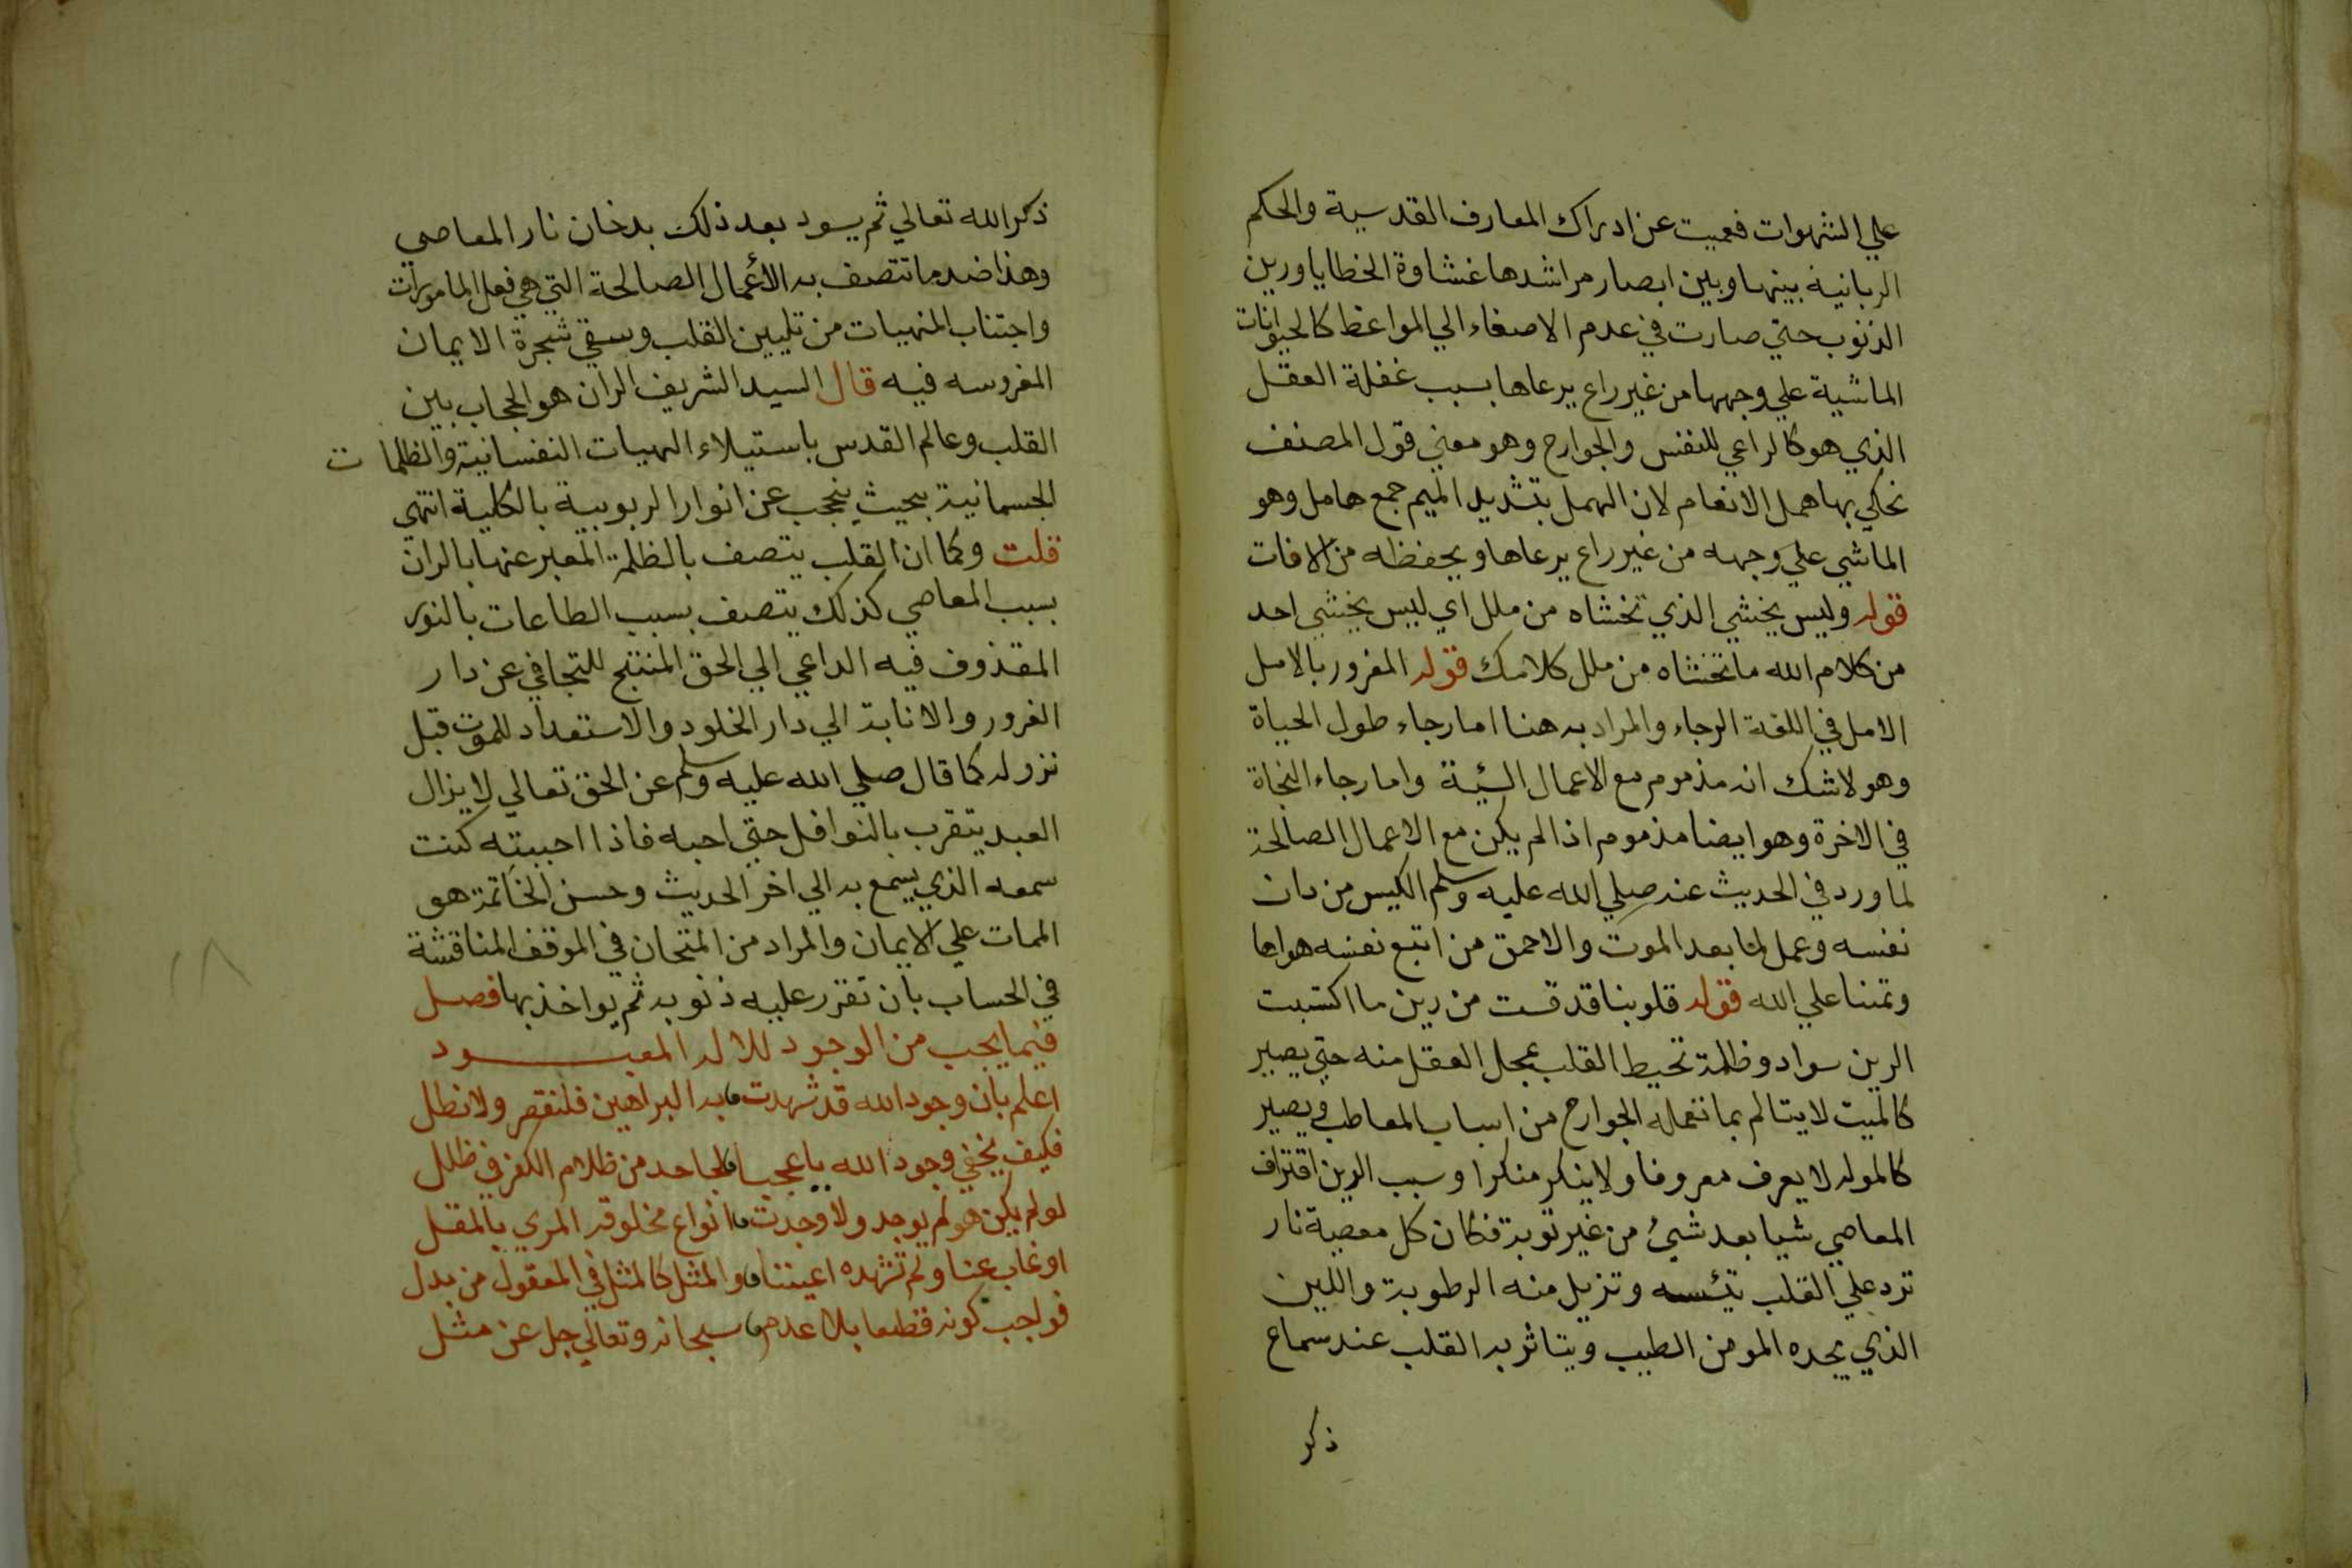 علي الشهوات فعميت عن ادراك المعارف القدسية والحكم
الربانية بينها وبين ابصار مراشدها غشاوة الخطايا ورين
الذنوب حتي صارت في عدم الاصغاء الي المواعظ كالحيوانات
الماشية علي وجهها من غير راع يرعاها بسبب غفلة العقل
الذي هو كالراعي للنفس والجوارح وهو معني قول المصنف
نحاكي بها همل الانعام لان الهمل بتشديد الميم جمع هامل وهو
الماشي علي وجهه من غير راع يرعاها ويحفظه من الافات
قوله وليس يخشي الذي تخشاه من ملل اي ليس يخشي احد
من كلام الله ما تخشاه من ملل كلامك قوله المغرور بالامل
الامل في اللغة الرجاء والمراد به هنا اما رجاء طول الحياة
وهو لا شك انه مذموم مع الاعمال السيئة واما رجاء النجاة
في الاخرة وهو ايضا مذموم اذا لم يكن مع الاعمال الصالحة
لما ورد في الحديث عنه صلي الله عليه وسلم الكيس من دان
نفسه وعمل لما بعد الموت والاحمق من اتبع نفسه هواها
وتمنا علي الله قوله قلوبنا قد قست من رين ما اكتسبت
الرين سواد وظلمة تحيط القلب بمحل العقل منه حتي يصير
كالميت لا يتالم بما تعمله الجوارح من اسباب المعاطب ويصير
كالموله لا يعرف معروفا ولا ينكر منكرا وسبب الرين اقتراف
المعاصي شيا بعد شيئ من غير توبة فكان كل معصية نار
ترد علي القلب تيئسه وتزيل منه الرطوبة واللين
الذي يجده المومن الطيب ويتاثر به القلب عند سماع
ذكر
ذكر الله تعالي ثم يسود بعد ذلك بدخان نار المعاصي
وهذا ضد ما تتصف به الأعمال الصالحة التي هي فعل المامورات
واجتناب المنهيات من تليين القلب وسقي شجرة الايمان
المغروسه فيه قال السيد الشريف الران هو الحجاب بين
القلب وعالم القدس باستيلاء الهيبات النفسانية والظلمات
الجسمانية بحيث ينحجب عن انوار الربوبية بالكلية انتهي
قلت وكما ان القلب يتصف بالظلمة المعبر عنها بالران
بسبب المعاصي كذلك يتصف بسبب الطاعات بالنور
المقذوف فيه الداعي الي الحق المنتج للتجافي عن دار
الغرور والانابة الي دار الخلود والاستعداد للموت قبل
نزوله كما قال صلي الله عليه وسلم عن الحق تعالي لا يزال
العبد يتقرب بالنوافل حتي احبه فاذا احببته كنت
سمعه الذي يسمع به الي اخر الحديث وحسن الخاتمة هو
الممات علي الايمان والمراد من المتحان في الموقف المناقشة
في الحساب بان تقرر عليه ذنوبه ثم يواخذ بها فصل
فيما يجب من الوجود للاله المعبود
اعلم بان وجود الله قد شهدت به البراهين فلنقصر ولا نطل
فكيف يخفي وجود الله يا عجبا لجاحد من ظلام الكفر في ظلل
لو لم يكن هو لم يوجد ولا وجدت انواع مخلوقه المري بالمقل
او غاب عنا ولم تشهده اعيننا والمثل كالمثل في المعقول من بدل
فواجب كونه قطعا بلا عدم سبحانه وتعالي جل عن مثل
١٨